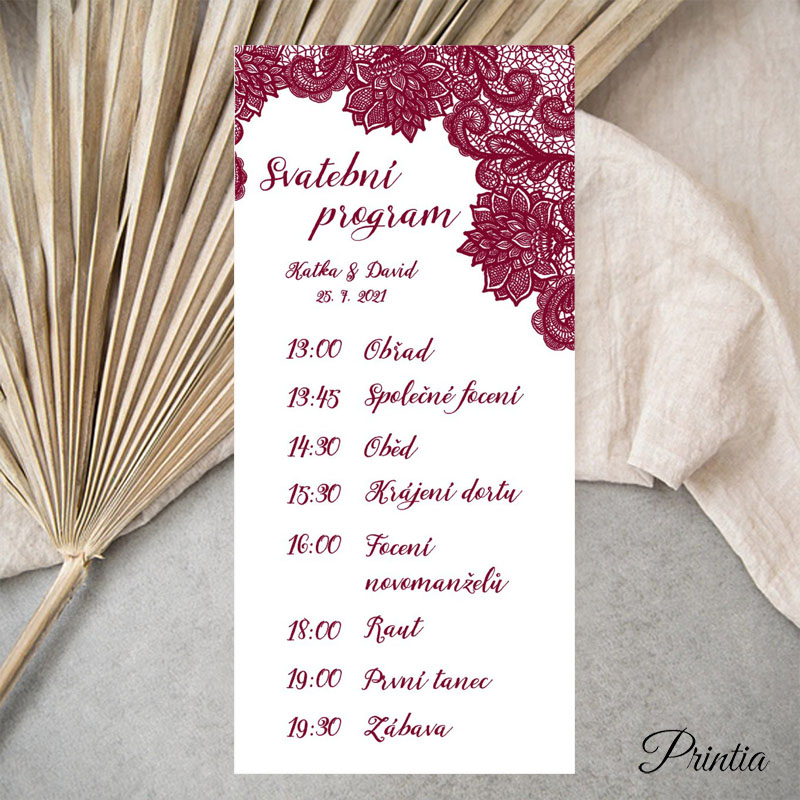 Svatební
program
Katka & David
25. 9. 2021
13:00 Obřad
13:45 Společné focení
14:30 Oběd
15:30 Krájení dortu
16:00 Focení
novomanželů
18:00 Raut
19:00 První tanec
19:30 Zábava
Printia